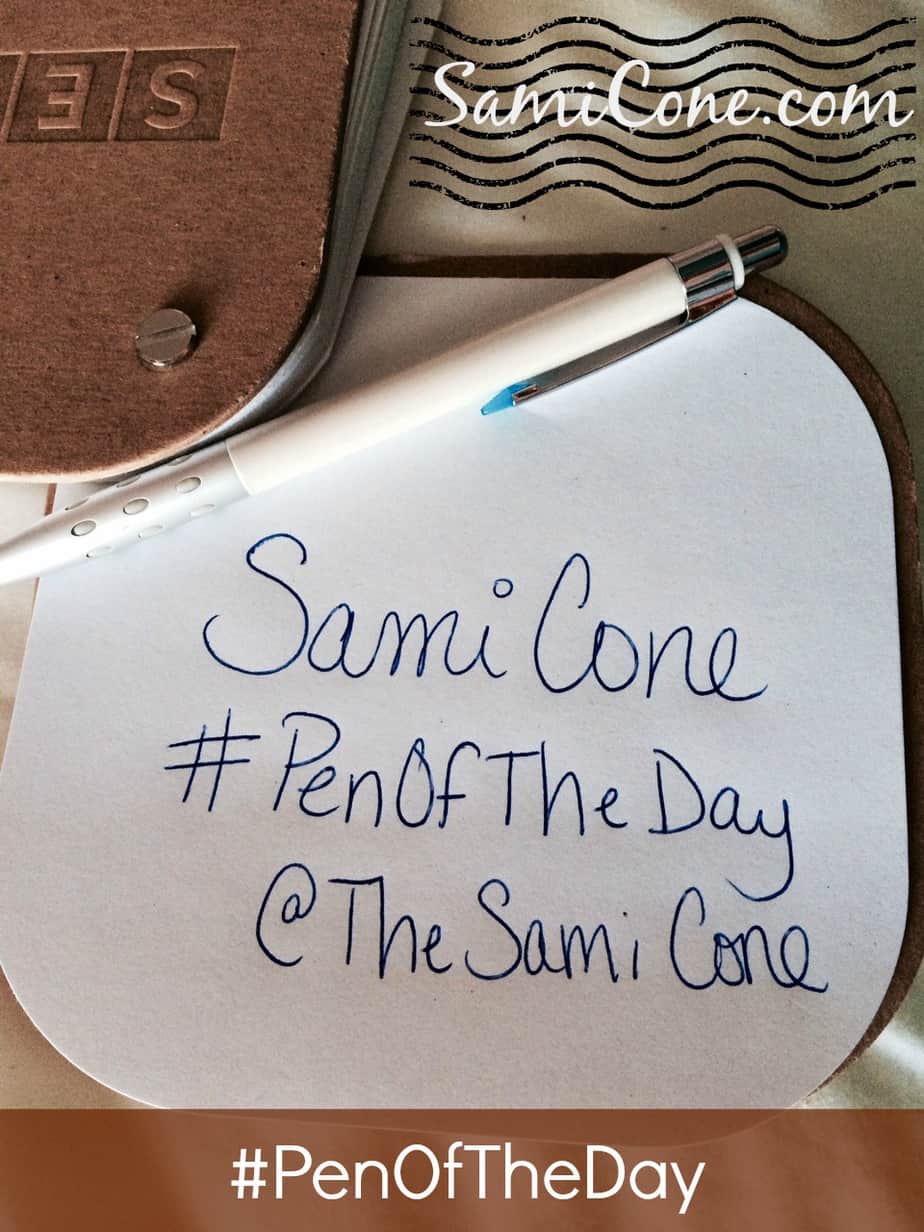 SamiCone.com
SE
Sami Cone
#PenOfTheDay
@TheSamiCone
#PenOfTheDay